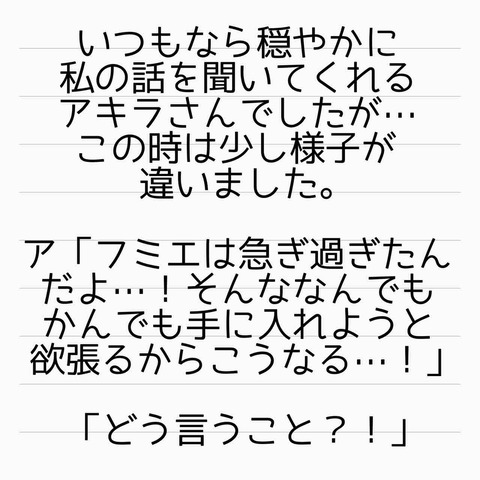 いつもなら穏やかに
私の話を聞いてくれる
アキラさんでしたが…
この時は少し様子が
違いました。
ア「フミエは急ぎ過ぎたん
だよ…！そんななんでも
かんでも手に入れようと
欲張るからこうなる…！」
「どう言うこと？！」